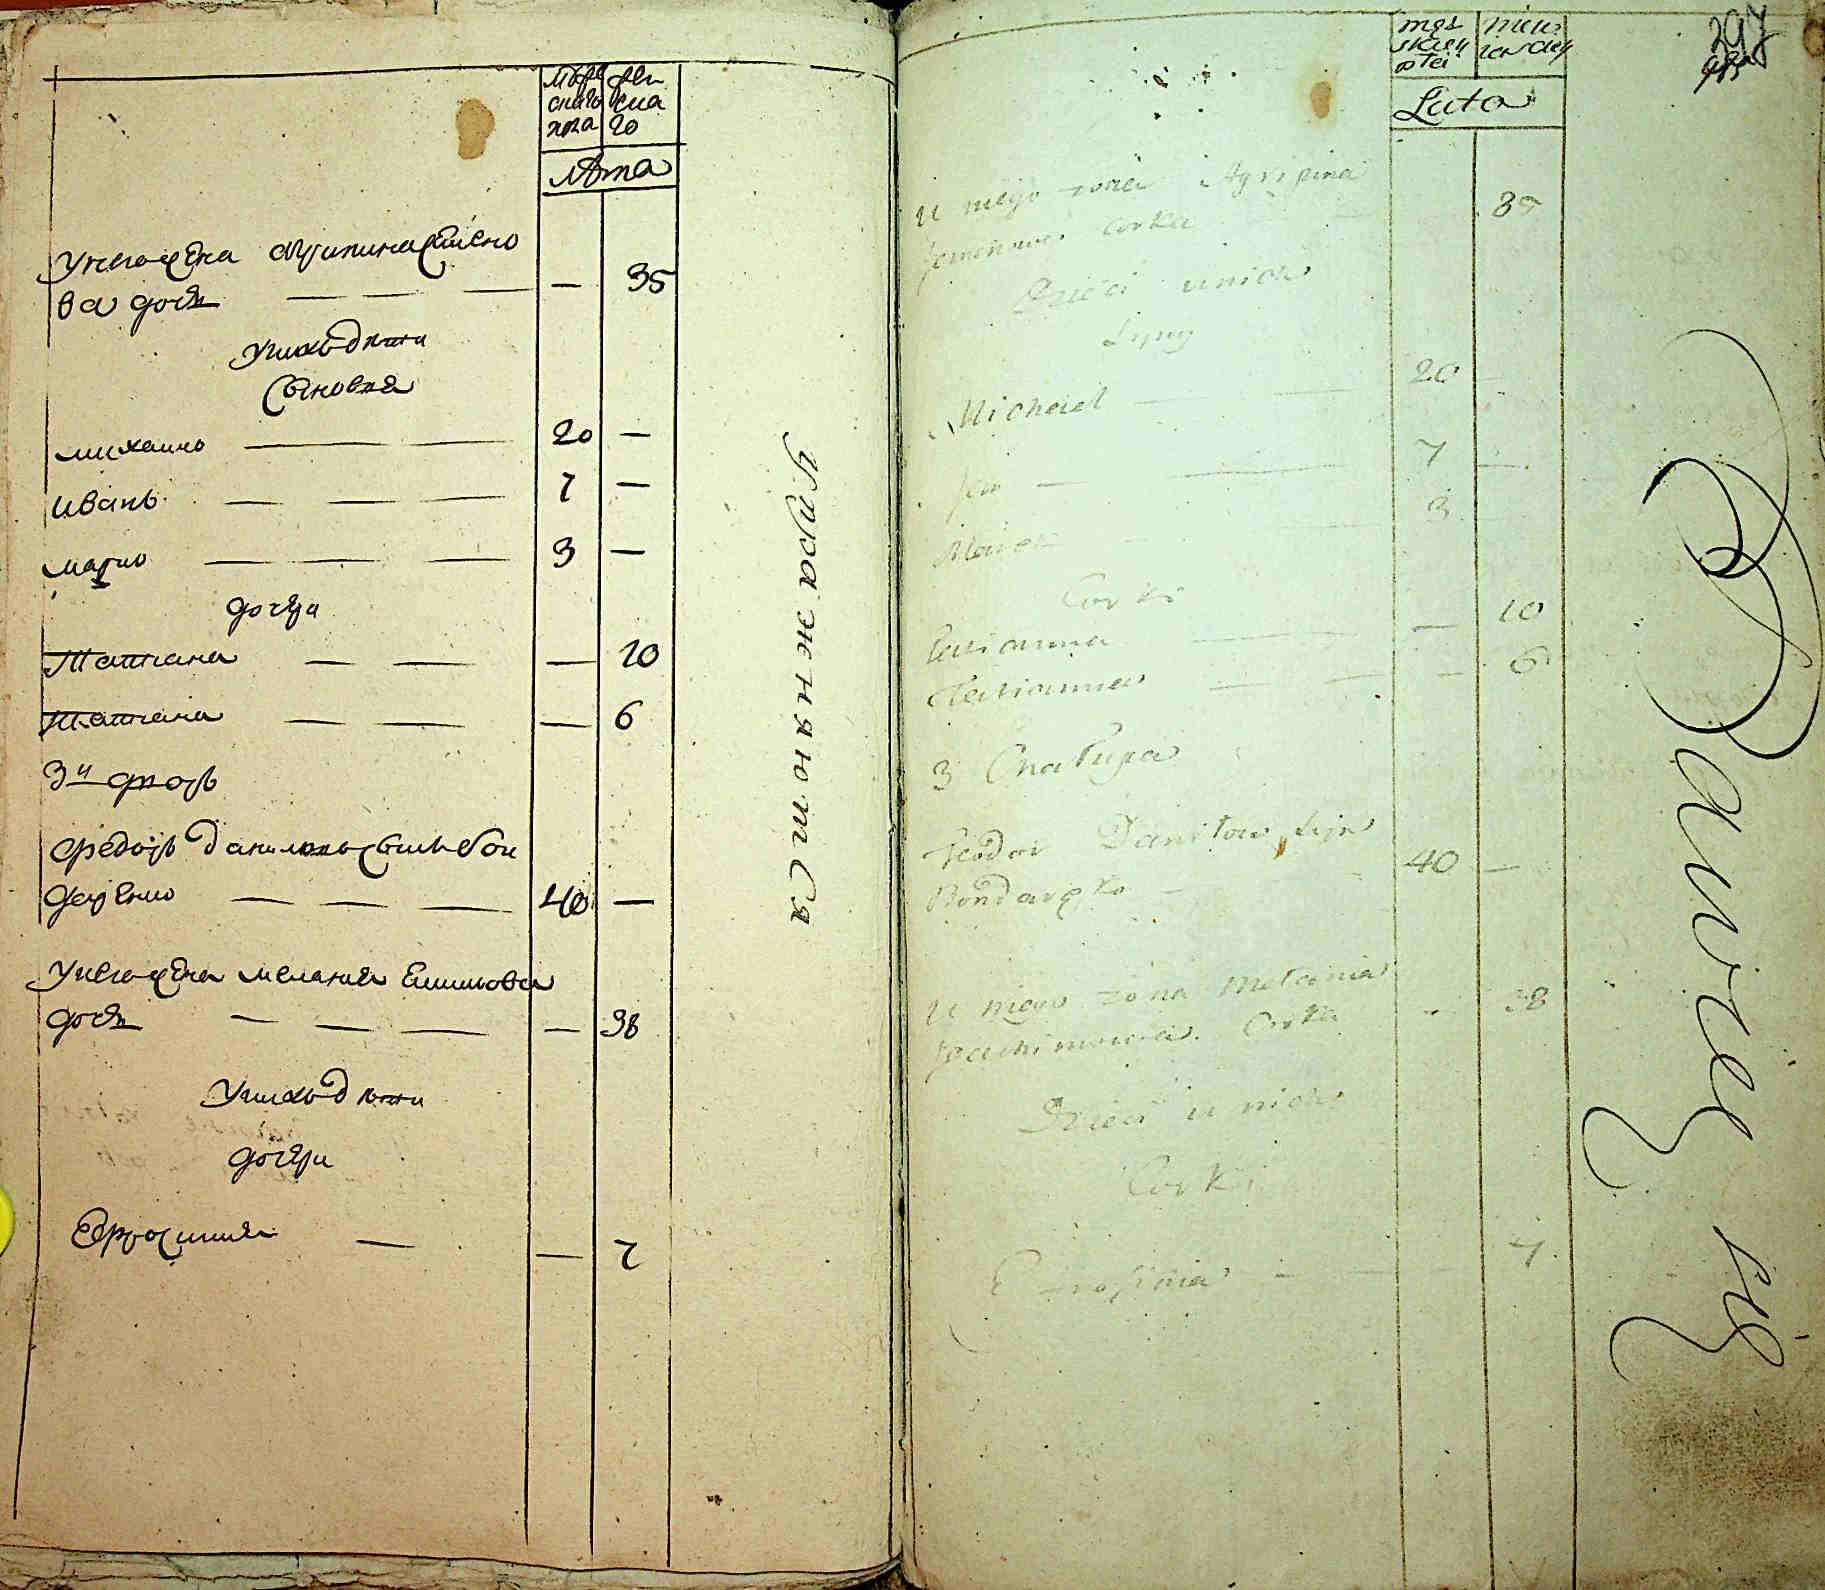 мужескаго пола
женскаго
лѣта
У него жена Агрипина Семено
ва дочь — — — — 35
У нихъ дѣти
Сыновья
михаило — — — 20 —
иванъ — — — 7 —
марко — — — 3 —
дочери
Татиана — — — 10
Татиана — — — 6
3й дворъ
Федоръ Даниловъ сынъ Бон
даренко — — — 40 —
У него жена мелания Екимова
дочь — — — — 38
У нихъ дѣти
дочери
Ефросиния — — 7
упражняютСя
męs
skiey
płci
niew
iasciey
297
Lata
U niego żona Agripina
Semenowa corka 35
Dzieci u nich
Syny
Michaiel — — 20 —
Jan — — 7 —
Marek — 3 —
Corki
Tatianna — — — 10
Tatianna — — — 6
3 Chałupa
Feodor Daniłow Syn
Bondaręko — 40 —
U niego żona Melania
Joachimowa Corka - 38
Dzieci u nich
Corki
Efrosinia — — — 7
Bawią się